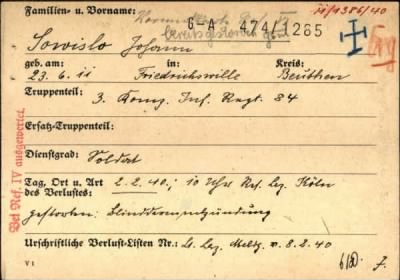 Familien- u. Vorname:
II/1386/40
bereits gestorben gem.
G-A 474/1285
Sowislo Johann
geb. am: in: Kreis:
23.6.11 Friedrichswille Beuthen
Truppenteil:
3. Komp. Inf. Regt. 84
Ersatz-Truppenteil:
Dienstgrad:
Soldat
Tag, Ort u. Art des Verlustes:
2.2.40; 10 Uhr Res. Laz. Köln
gestorben: Blinddarmentzündung
Urschriftliche Verlust-Listen Nr.: Lt. Laz. Meldg. v. 8.2.40
V 1
Bei Ref. IV ausgewertet.